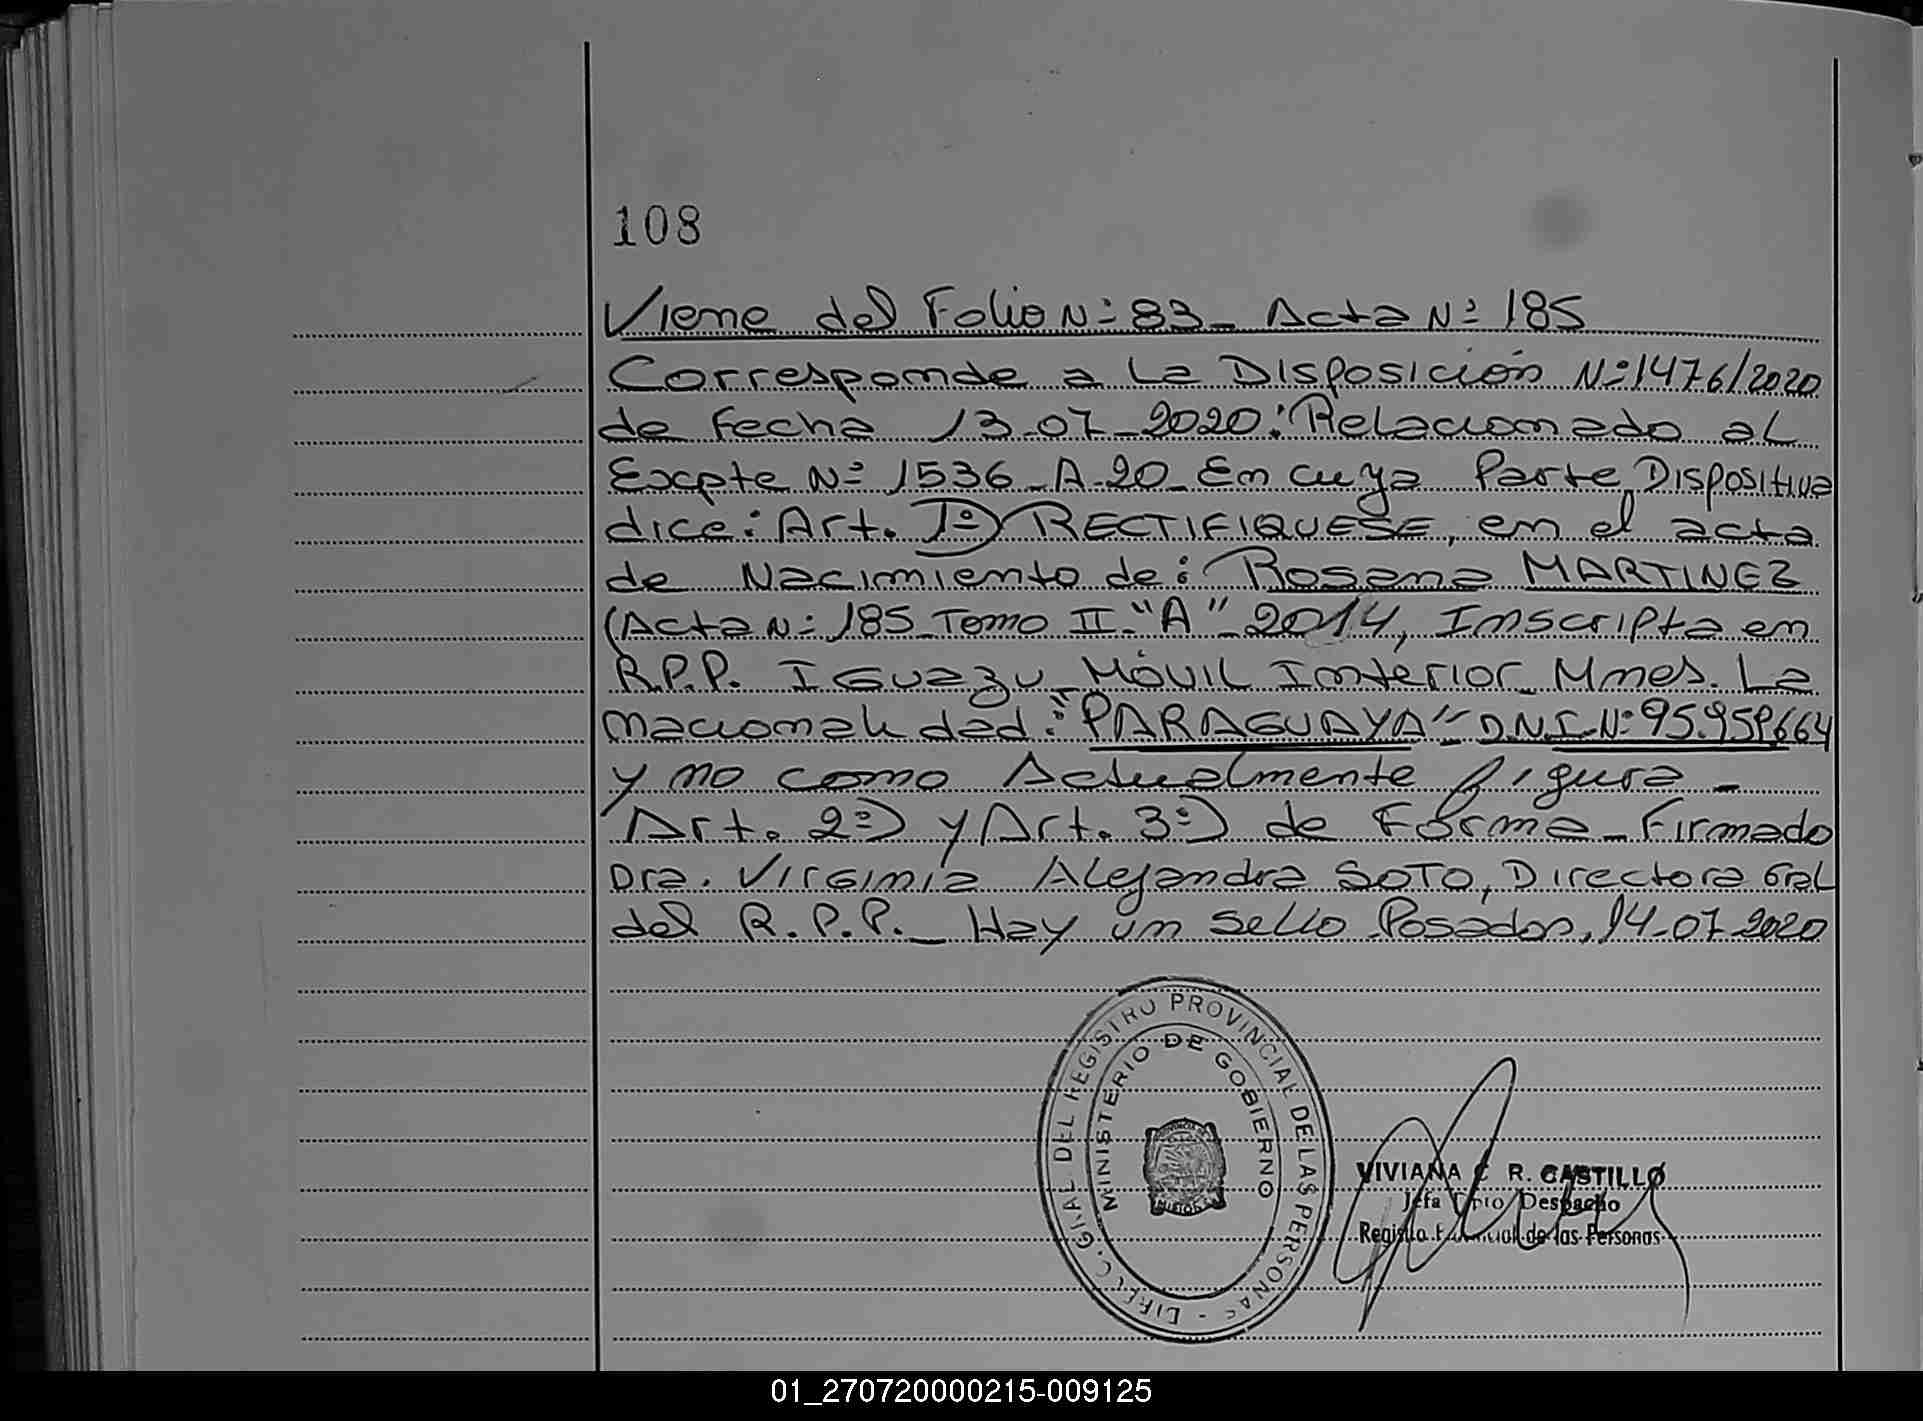 108
Viene del Folio Nº 83 - Acta Nº 185
Corresponde a La Disposición Nº 1476/2020
de Fecha 13-07-2020: Relacionado al
Expte Nº 1536-A-20- En cuya Parte Dispositiva
dice: Art. 1º) RECTIFIQUESE, en el acta
de Nacimiento de: Rosana MARTINEZ
(Acta Nº 185 Tomo II-"A"-2014, Inscripta en
R.P.P. IGuazu-MÓVIL Interior-Mnes. La
nacionalidad: "PARAGUAYA"- D.N.I. Nº 95.959.664
y no como Actualmente figura -
Art. 2º) y Art. 3º) de Forma - Firmado
Dra. VIRGINIA Alejandra SOTO, Directora Gral
del R.P.P. - Hay un sello Posadas, 14-07-2020
DIREC. GRAL DEL REGISTRO PROVINCIAL DE LAS PERSONAS -
MINISTERIO DE GOBIERNO
VIVIANA C R. CASTILLO
Jefa Dpto Despacho
Registro Provincial de las Personas
01_270720000215-009125